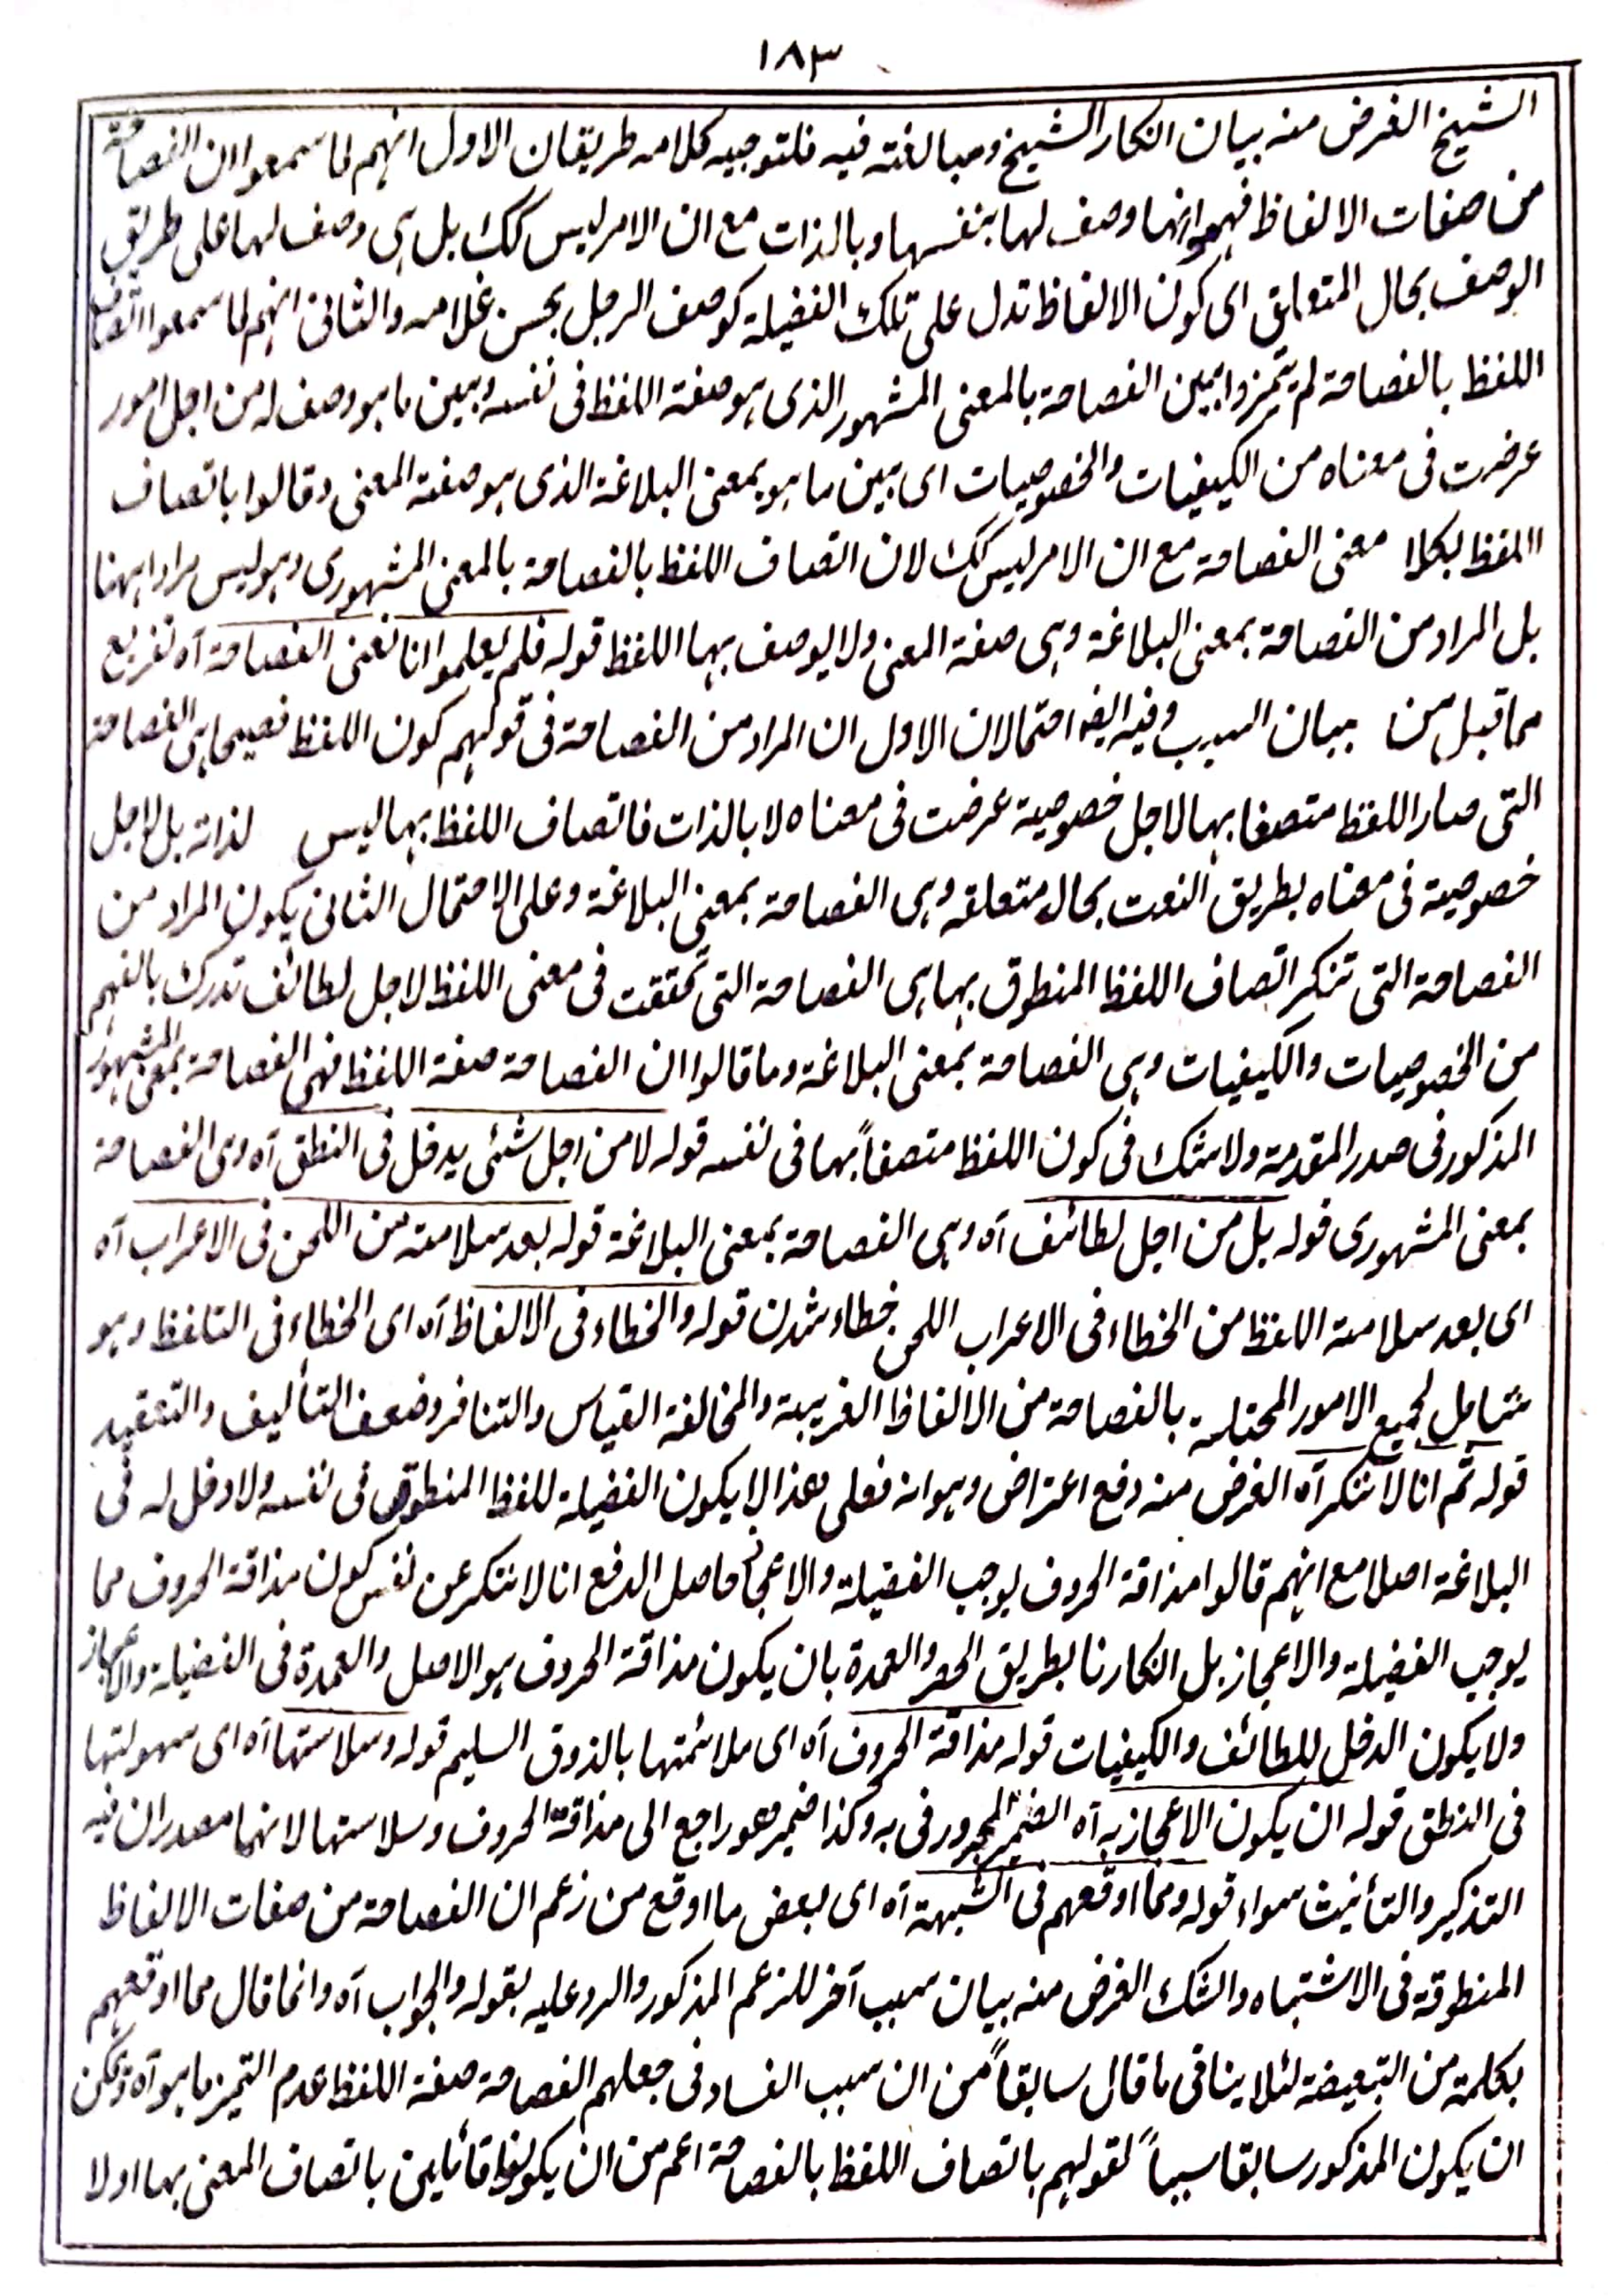 ١٨٣
الشيخ الغرض منه بيان انكار الشيخ ومبالغته فيه فلتوجيه كلامه طريقان الاول انهم لما سمعوا ان الفصاحة
من صفات الالفاظ فهموا انها وصف لها بنفسها وبالذات مع ان الامر ليس كك بل هى وصف لها على طريق
الوصف بحال المتعلق اى كون الالفاظ تدل على تلك الفضيلة كوصف الرجل بحسن غلامه والثانى انهم لما سمعوا اتصاف
اللفظ بالفصاحة لم يتميزوا بين الفصاحة بالمعنى المشهور الذى هو صفة اللفظ فى نفسه وبين ما هو وصف له من اجل امور
عرضت فى معناه من الكيفيات والخصوصيات اى بين ما هو بمعنى البلاغة الذى هو صفة المعنى وقالوا باتصاف
اللفظ بكلا معنى الفصاحة مع ان الامر ليس كك لان اتصاف اللفظ بالفصاحة بالمعنى المشهورى وهو ليس مرادا ههنا
بل المراد من الفصاحة بمعنى البلاغة وهى صفة المعنى ولا يوصف بها اللفظ قوله فلم يعلموا انا نعنى الفصاحة آه تفريع
مما قبل من بيان السبب وفيه ايضا احتمالان الاول ان المراد من الفصاحة فى قولهم كون اللفظ فصيحا هى الفصاحة
التى صار اللفظ متصفا بها لاجل خصوصية عرضت فى معناه لا بالذات فاتصاف اللفظ بها ليس لذاته بل لاجل
خصوصية فى معناه بطريق النعت بحال متعلقه وهى الفصاحة بمعنى البلاغة وعلى الاحتمال الثانى يكون المراد من
الفصاحة التى تنكر اتصاف اللفظ المنطوق بها هى الفصاحة التى تحققت فى معنى اللفظ لاجل لطائف تدرك بالفهم
من الخصوصيات والكيفيات وهى الفصاحة بمعنى البلاغة وما قالوا ان الفصاحة صفة اللفظ فهى الفصاحة بمعنى المشهور
المذكور فى صدر المقدمة ولا شك فى كون اللفظ متصفاً بها فى نفسه قوله لا من اجل شئى يدخل فى النطق آه وهى الفصاحة
بمعنى المشهورى قوله بل من اجل لطائف آه وهى الفصاحة بمعنى البلاغة قوله بعد سلامته من اللحن فى الاعراب آه
اى بعد سلامة اللفظ من الخطاء فى الاعراب اللحن خطاء شدن قوله والخطاء فى الالفاظ آه اى الخطاء فى التلفظ وهو
شامل لجميع الامور المختلسة بالفصاحة من الالفاظ الغريبة والمخالفة القياس والتنافر وضعف التأليف والتعقيد
قوله ثم انا لا ننكر آه الغرض منه دفع اعتراض وهو انه فعلى هذا لا يكون الفضيلة للفظ المنطوق فى نفسه ولا دخل له فى
البلاغة اصلا مع انهم قالوا مذاقة الحروف يوجب الفضيلة والاعجاز حاصل الدفع انا لا ننكر عن نفس كون مذاقة الحروف مما
يوجب الفضيلة والاعجاز بل انكارنا بطريق الحصر والعمدة بان يكون مذاقة الحروف هو الاصل والعمدة فى الفضيلة والاعجاز
ولا يكون الدخل للطائف والكيفيات قوله مذاقة الحروف آه اى ملائمتها بالذوق السليم قوله وسلاستها آه اى سهولتها
فى النطق قوله ان يكون الاعجاز به آه الضمير المجرور فى به وكذا ضمير هو راجع الى مذاقة الحروف وسلاستها لانهما مصدران فيه
التذكير والتأنيث سواء قوله ومما اوقعهم فى الشبهة آه اى بعض ما اوقع من زعم ان الفصاحة من صفات الالفاظ
المنطوقة فى الاشتباه والشك الغرض منه بيان سبب آخر للزعم المذكور والرد عليه بقوله والجواب آه وانما قال مما اوقعهم
بكلمة من التبعيضة لئلا ينافى ما قال سابقاً من ان سبب الفساد فى جعلهم الفصاحة صفة اللفظ عدم التميز ما هو آه ويمكن
ان يكون المذكور سابقا سبباً لقولهم باتصاف اللفظ بالفصاحة اعم من ان يكونوا قائلين باتصاف المعنى بها اولا